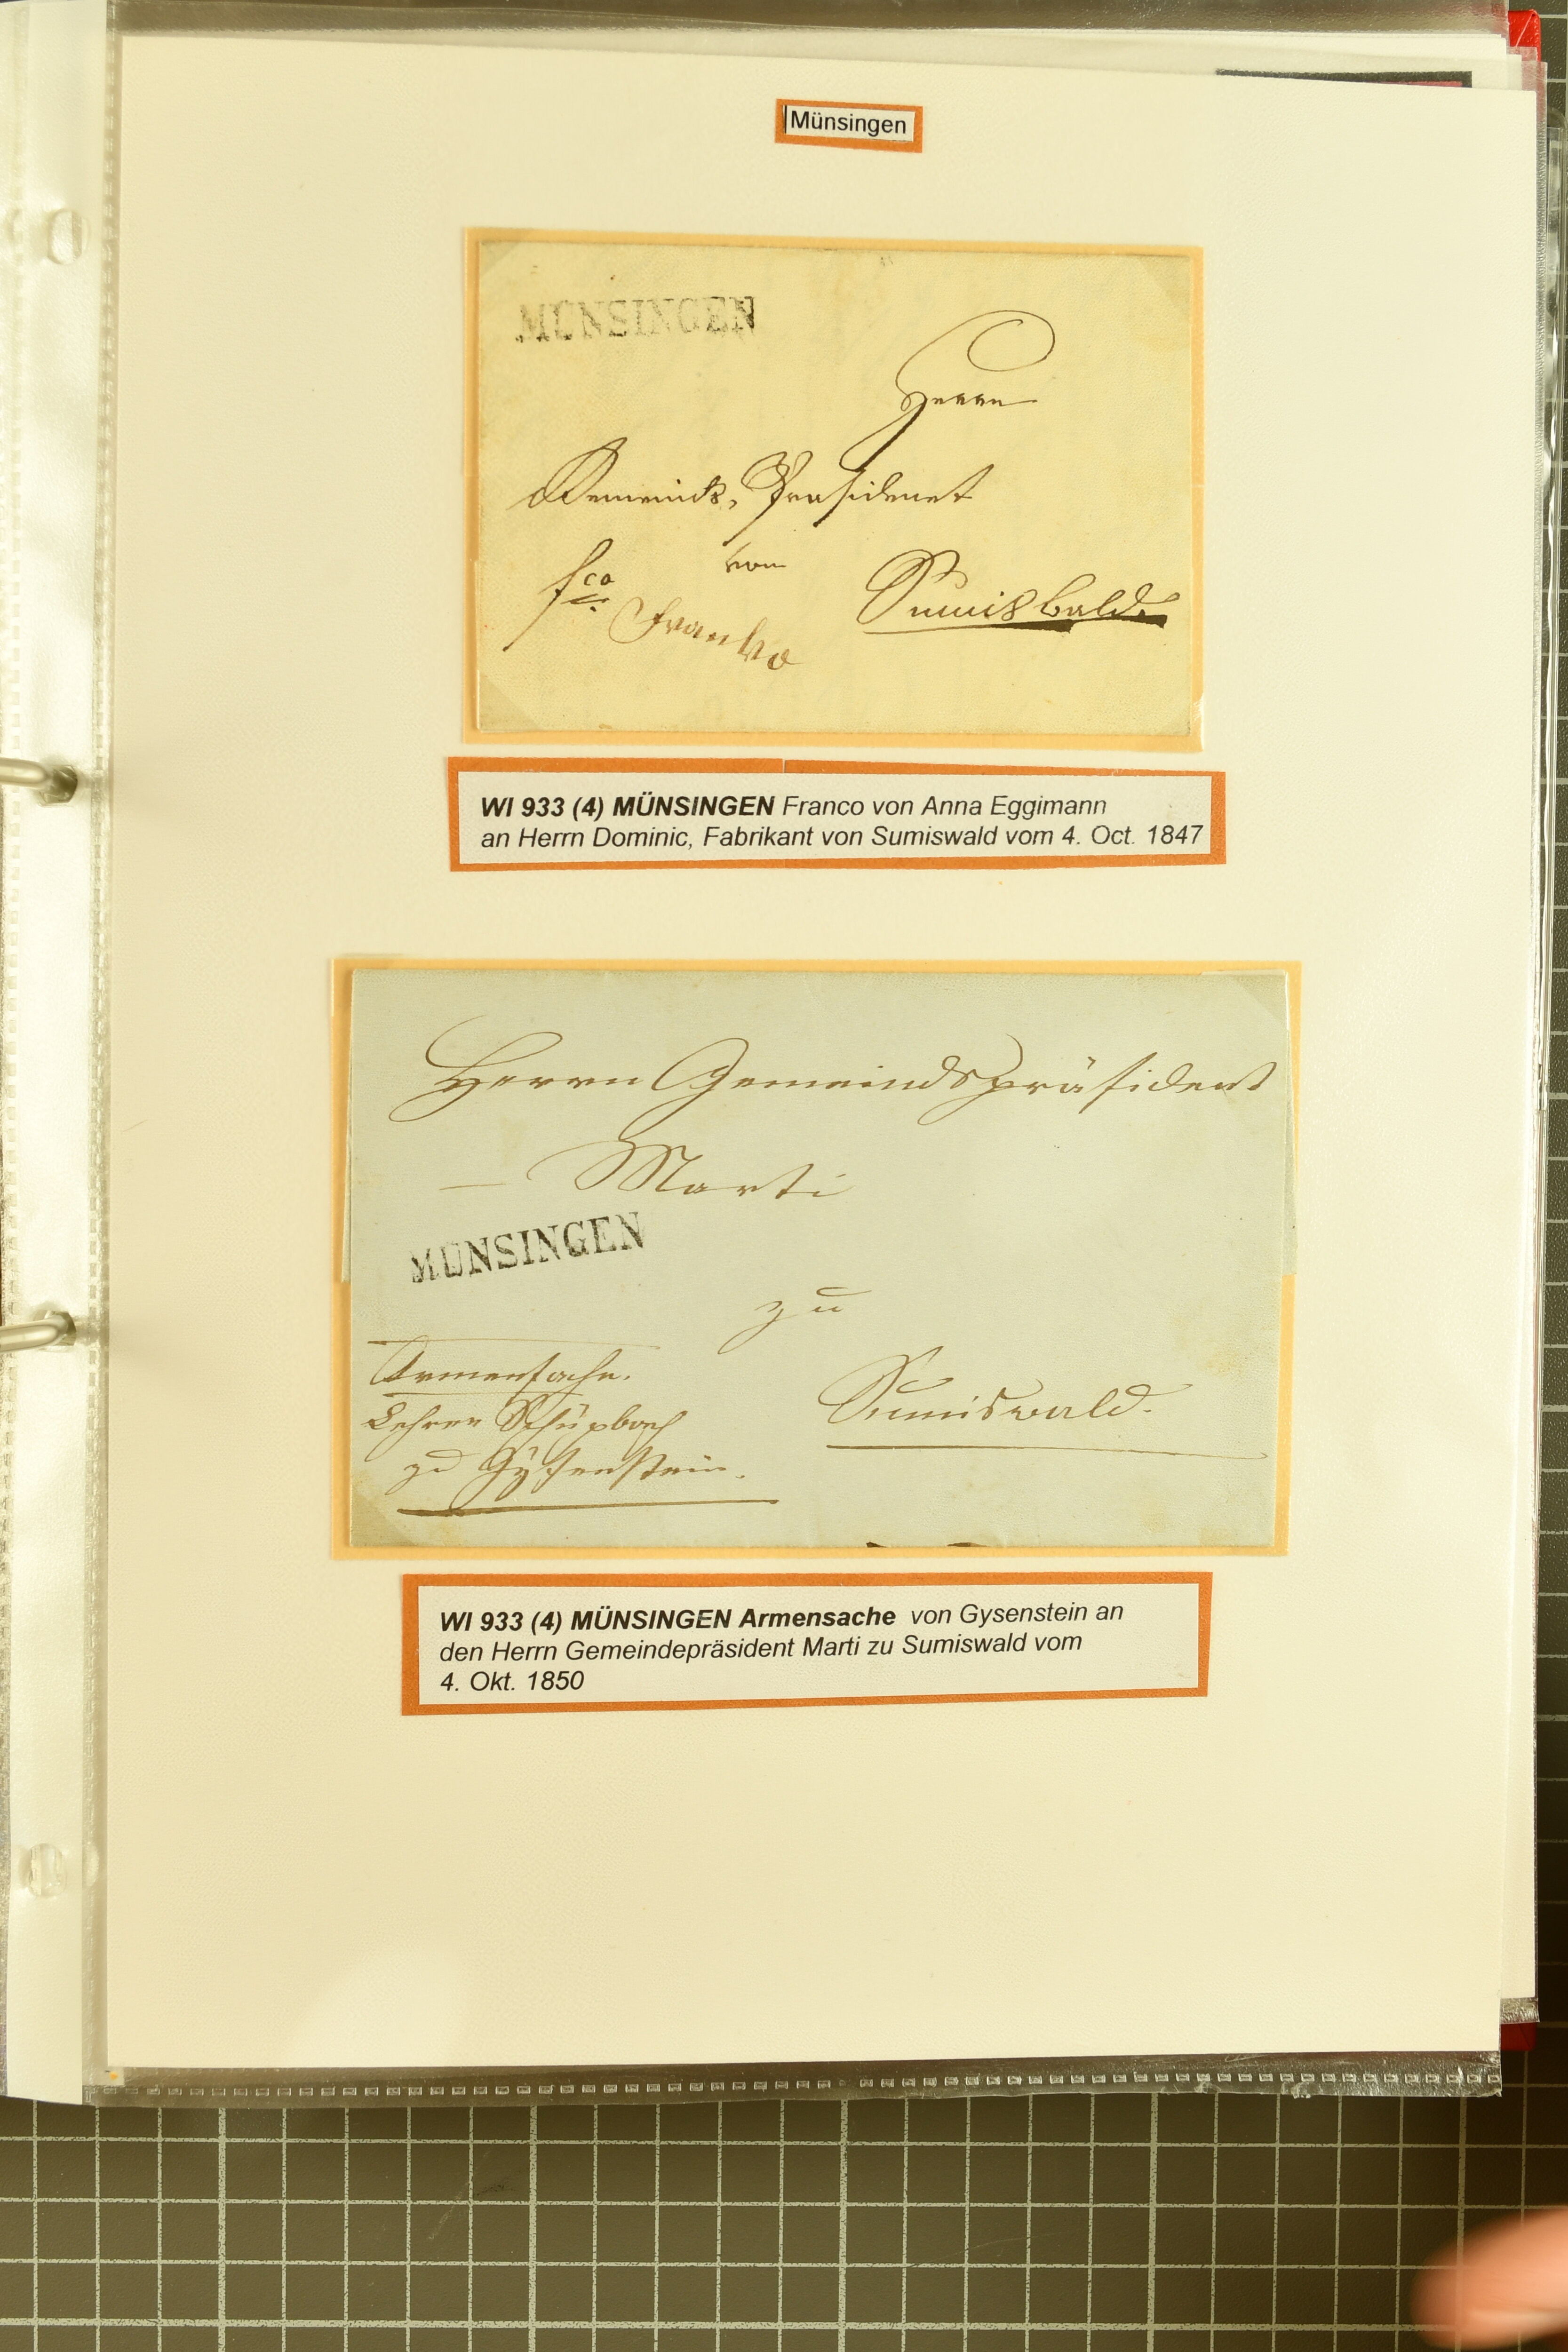 Münsingen
MÜNSINGEN
Herrn
Gemeinds, Präsident
von
fco
Franko Sumisbald.
WI 933 (4) MÜNSINGEN Franco von Anna Eggimann
an Herrn Dominic, Fabrikant von Sumiswald vom 4. Oct. 1847
Herrn Gemeindspräsident
Marti
MÜNSINGEN
zu
Armensache.
Sumiswald.
Lehrer Schüpbach
zu Gysenstein.
WI 933 (4) MÜNSINGEN Armensache von Gysenstein an
den Herrn Gemeindepräsident Marti zu Sumiswald vom
4. Okt. 1850